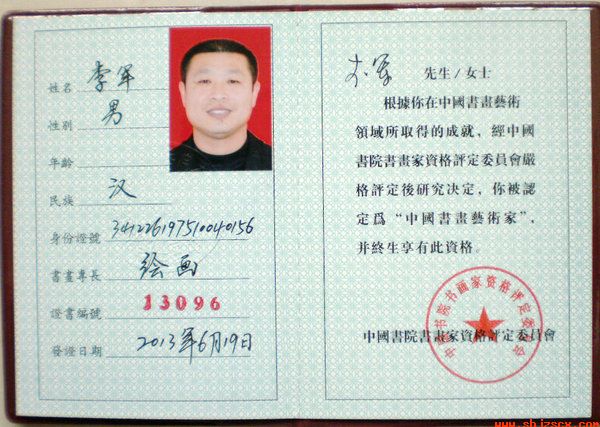 姓名 李军
性别 男
年龄
民族 汉
身份證號 341226197510040156
書畫專長 绘画
證書編號 13096
發證日期 2013年6月19日
李军 先生/女士
根據你在中國書畫藝術
領域所取得的成就，經中國
書院書畫家資格評定委員會嚴
格評定後研究决定，你被認
定爲“中國書畫藝術家”，
并終生享有此資格。
中國書院書畫家資格評定委員會
中国书院书画家资格评定委员会
www.shizscx.com